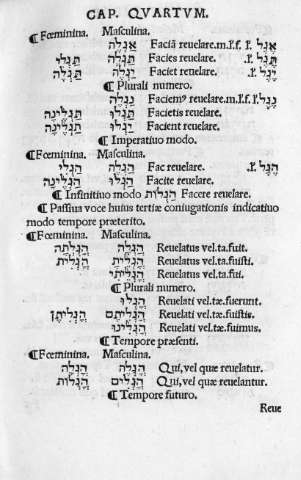 CAP. QVARTVM.
¶ Fœminina. Masculina.
אַגְלֶה Faciã reuelare.m.l'.f. l'.
תַּגְלִי תַּגְלֶה Facies reuelare.
תַּגְלֶה יַגְלֶה Faciet reuelare.
¶ Plurali numero.
נַגְלֶה Faciemꝰ reuelare.m.l'.f.
תַּגְלֶינָה תַּגְלוּ Facietis reuelare.
תַּגְלֶינָה יַגְלוּ Facient reuelare.
¶ Imperatiuo modo.
¶ Fœminina. Masculina.
הַגְלִי הַגְלֵה Fac reuelare.
הַגְלֶינָה הַגְלוּ Facite reuelare.
¶ Infinitiuo modo הַגְלוֹת Facere reuelare.
¶ Passiua voce huius tertiæ coniugationis indicatiuo
modo tempore præterito.
¶ Fœminina. Masculina.
הָגְלְתָה הָגְלָה Reuelatus vel.ta.fuit.
הָגְלֵית הָגְלֵיתָ Reuelatus vel.ta.fuisti.
הָגְלֵיתִי Reuelatus vel.ta.fui.
¶ Plurali numero.
הָגְלוּ Reuelati vel.tæ.fuerunt.
הָגְלֵיתֶן הָגְלֵיתֶם Reuelati vel.tæ.fuistis.
הָגְלֵינוּ Reuelati vel.tæ.fuimus.
¶ Tempore præsenti.
¶ Fœminina. Masculina.
הָגְלָה Qui, vel quæ reuelatur.
הָגְלוֹת הָגְלִים Qui, vel quæ reuelantur.
¶ Tempore futuro.
Reue